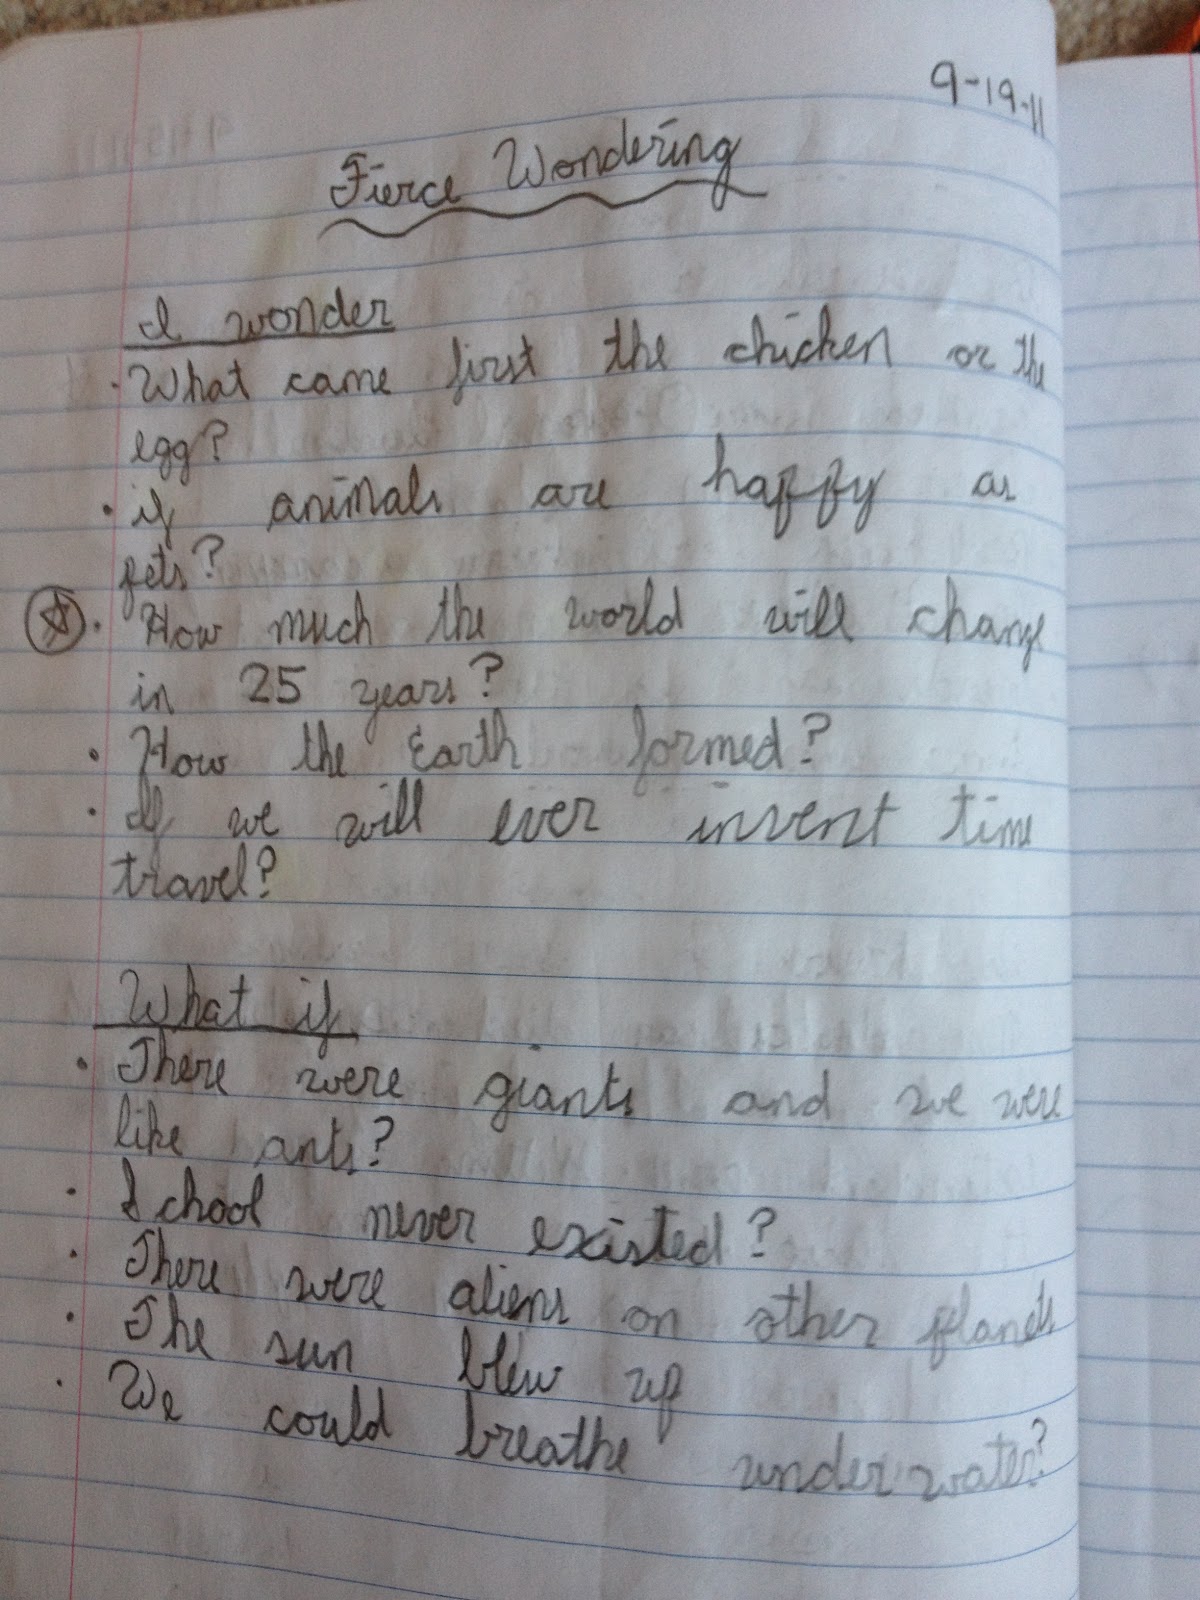 9-19-11
Fierce Wondering
I wonder
• What came first the chicken or the
egg?
• if animals are happy as
pets?
• How much the world will change
in 25 years?
• How the Earth formed?
• If we will ever invent time
travel?
What if
• There were giants and we were
like ants?
• School never existed?
• There were aliens on other planets
• The sun blew up
• We could breathe under water?